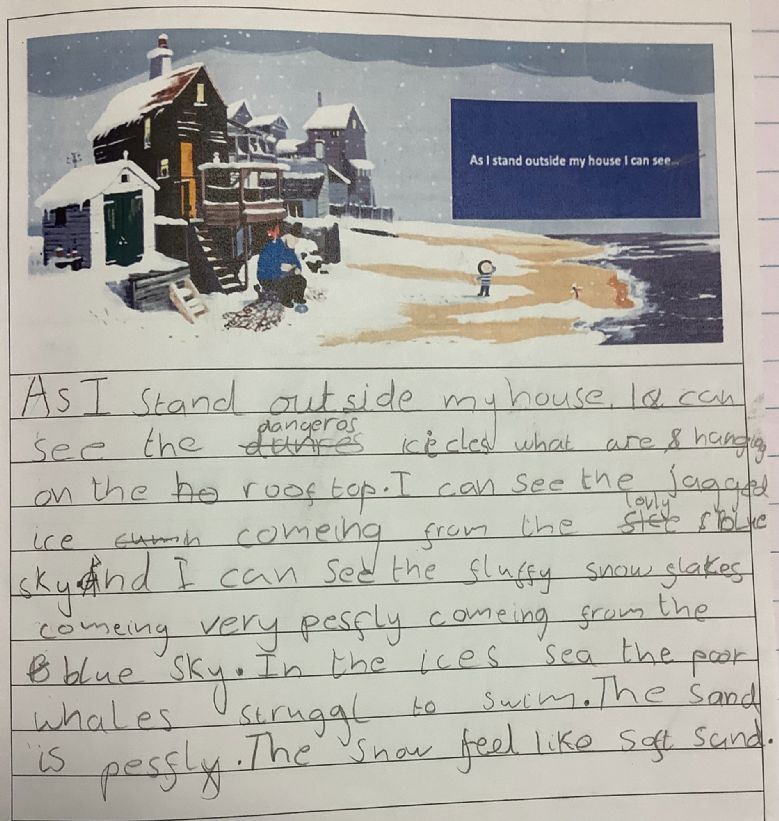 As I stand outside my house I can see...
As I stand out side my house, I can
see the dangeros icicles what are hanging
on the roof top. I can see the jagged
ice comeing from the lovly blue
sky. And I can see the fluffy snow flakes
comeing very pesfly comeing from the
blue sky. In the ices sea the poor
whales struggl to swim. The sand
is pesfly. The snow feel like soft sand.